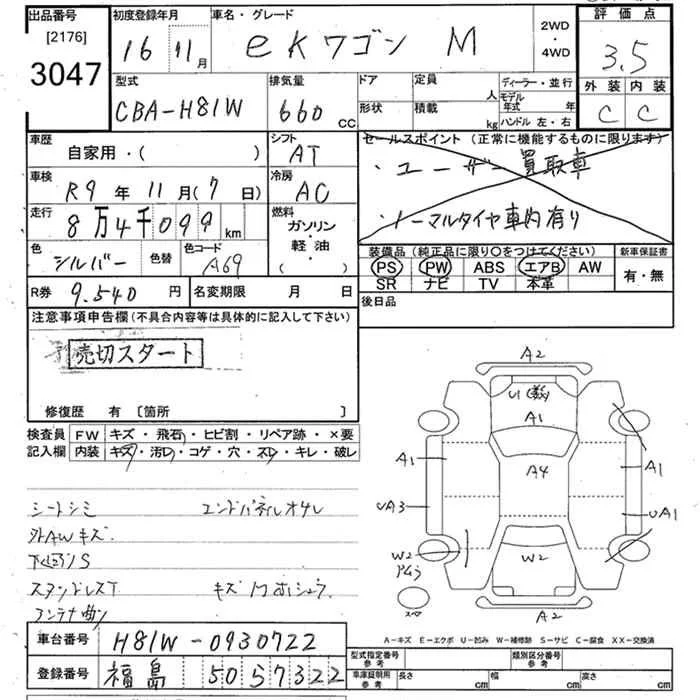 出品番号 初度登録年月 車名・グレード 2WD・4WD 評価点
[2176]
3047 16 11月 eKワゴン M 3.5
型式 排気量 ドア 定員 人 ディーラー・並行 外装 内装
CBA-H81W 660 CC 形状 積載 kg モデル年式 年 ハンドル 左・右 C C
車歴 シフト セールスポイント (正常に機能するものに限ります)
自家用・( ) AT ・ユーザー買取車
車検 冷房
R9年 11月(7日) AC ・ノーマルタイヤ車内有り
走行 燃料
8万4千099km ガソリン・軽油・( )
色 色替 色コード 装備品 (純正品に限り〇をつけてください) 新車保証書
シルバー A69 PS PW ABS エアB AW 有・無
SR ナビ TV 本革
R券 9.540円 名変期限 月 日 後日品
注意事項申告欄 (不具合内容等は具体的に記入して下さい)
売切スタート
修復歴 有 [箇所 ]
検査員 FW キズ・飛石・ヒビ割・リペア跡・×要
記入欄 内装 キズ・汚レ・コゲ・穴・スレ・キレ・破レ
シートシミ エンドパネルオサレ
外AWキズ
下回りS
アンテナ曲
A2
U1
A1
A1 A4 A1
UA3 UA1
W2 W2
A2
A-キズ E-エクボ U-凹み W-補修跡 S-サビ C-腐食 XX-交換済
車台番号 H81W-0930722 型式指定番号 参考 類別区分番号 参考
登録番号 福島 50 5 7322 車庫証明用 参考 長さ cm 幅 cm 高さ cm